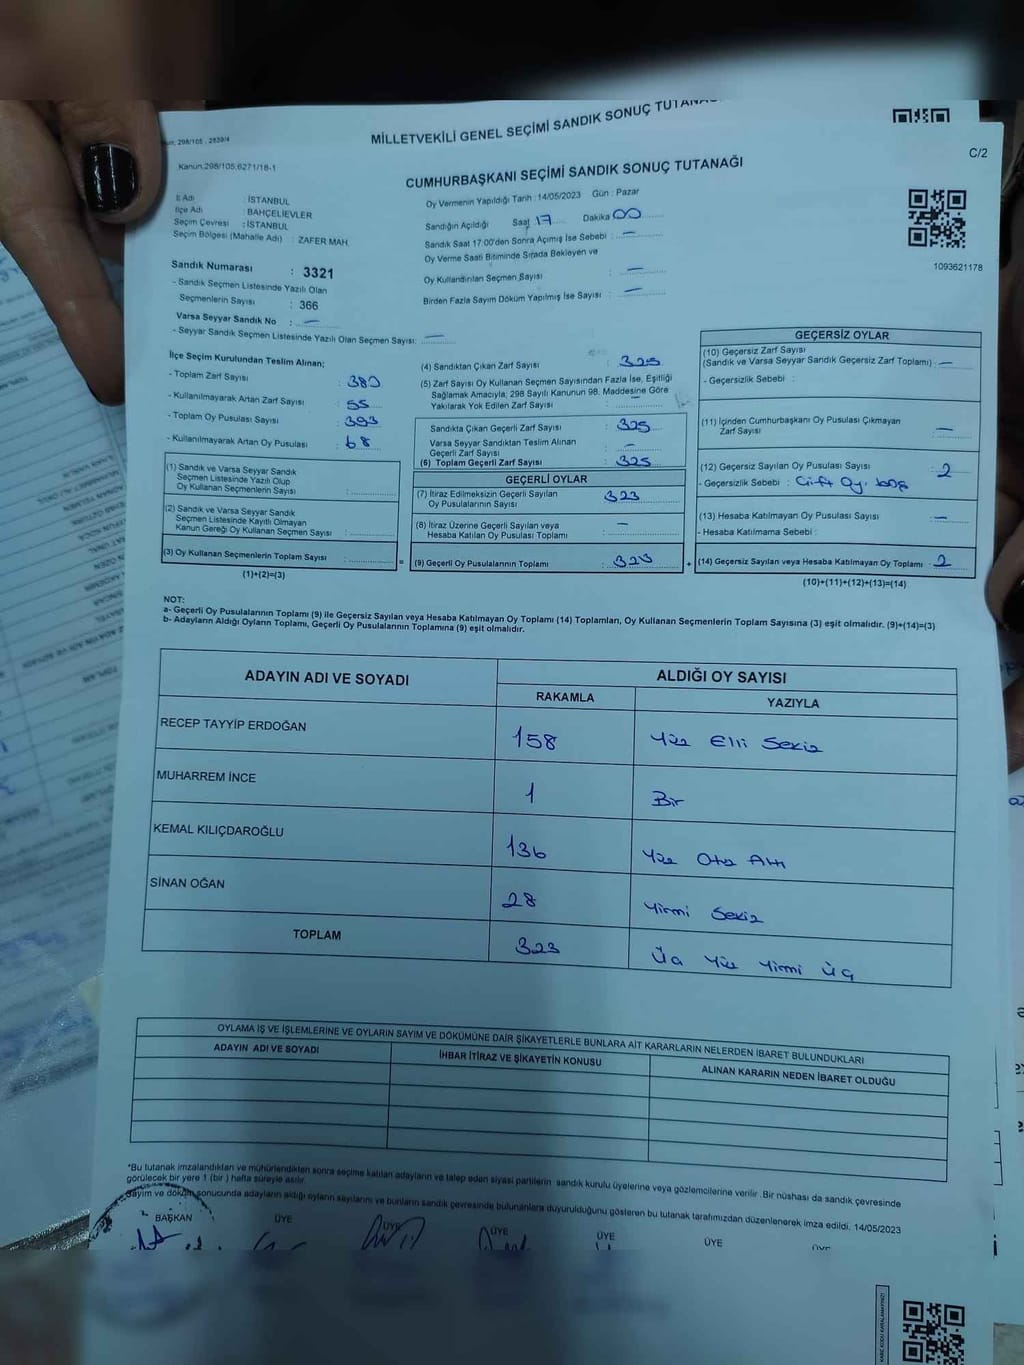 MİLLETVEKİLİ GENEL SEÇİMİ SANDIK SONUÇ
298/105 , 2839/4
Kanun.298/105,6271/18-1
C/2
CUMHURBAŞKANI SEÇİMİ SANDIK SONUÇ TUTANAĞI
İl Adı : İSTANBUL
İlçe Adı : BAHÇELİEVLER
Seçim Çevresi : İSTANBUL
Seçim Bölgesi (Mahalle Adı) : ZAFER MAH.
Oy Vermenin Yapıldığı Tarih : 14/05/2023 Gün : Pazar
Sandığın Açıldığı Saat 17 Dakika 00
Sandık Saat 17:00'den Sonra Açılmış İse Sebebi : —
Oy Verme Saati Bitiminde Sırada Bekleyen ve
Oy Kullandırılan Seçmen Sayısı : —
Birden Fazla Sayım Döküm Yapılmış İse Sayısı : —
1093621178
Sandık Numarası : 3321
- Sandık Seçmen Listesinde Yazılı Olan
Seçmenlerin Sayısı : 366
Varsa Seyyar Sandık No : —
- Seyyar Sandık Seçmen Listesinde Yazılı Olan Seçmen Sayısı: —
İlçe Seçim Kurulundan Teslim Alınan;
- Toplam Zarf Sayısı : 380
- Kullanılmayarak Artan Zarf Sayısı : 55
- Toplam Oy Pusulası Sayısı : 393
- Kullanılmayarak Artan Oy Pusulası : 68
(1) Sandık ve Varsa Seyyar Sandık
Seçmen Listesinde Yazılı Olup
Oy Kullanan Seçmenlerin Sayısı :
(2) Sandık ve Varsa Seyyar Sandık
Seçmen Listesinde Kayıtlı Olmayan
Kanun Gereği Oy Kullanan Seçmen Sayısı :
(3) Oy Kullanan Seçmenlerin Toplam Sayısı :
(1)+(2)=(3)
(4) Sandıktan Çıkan Zarf Sayısı : 325
(5) Zarf Sayısı Oy Kullanan Seçmen Sayısından Fazla İse, Eşitliği
Sağlamak Amacıyla; 298 Sayılı Kanunun 98. Maddesine Göre
Yakılarak Yok Edilen Zarf Sayısı : —
Sandıkta Çıkan Geçerli Zarf Sayısı : 325
Varsa Seyyar Sandıktan Teslim Alınan
Geçerli Zarf Sayısı : —
(6) Toplam Geçerli Zarf Sayısı : 325
GEÇERLİ OYLAR
(7) İtiraz Edilmeksizin Geçerli Sayılan
Oy Pusulalarının Sayısı : 323
(8) İtiraz Üzerine Geçerli Sayılan veya
Hesaba Katılan Oy Pusulası Toplamı : —
= (9) Geçerli Oy Pusulalarının Toplamı : 323 +
GEÇERSİZ OYLAR
(10) Geçersiz Zarf Sayısı
(Sandık ve Varsa Seyyar Sandık Geçersiz Zarf Toplamı) : —
- Geçersizlik Sebebi :
(11) İçinden Cumhurbaşkanı Oy Pusulası Çıkmayan
Zarf Sayısı : —
(12) Geçersiz Sayılan Oy Pusulası Sayısı : 2
- Geçersizlik Sebebi : Çift Oy, boş
(13) Hesaba Katılmayan Oy Pusulası Sayısı : —
- Hesaba Katılmama Sebebi :
(14) Geçersiz Sayılan veya Hesaba Katılmayan Oy Toplamı : 2
(10)+(11)+(12)+(13)=(14)
NOT:
a- Geçerli Oy Pusulalarının Toplamı (9) ile Geçersiz Sayılan veya Hesaba Katılmayan Oy Toplamı (14) Toplamları, Oy Kullanan Seçmenlerin Toplam Sayısına (3) eşit olmalıdır. (9)+(14)=(3)
b- Adayların Aldığı Oyların Toplamı, Geçerli Oy Pusulalarının Toplamına (9) eşit olmalıdır.
ADAYIN ADI VE SOYADI ALDIĞI OY SAYISI
RAKAMLA YAZIYLA
RECEP TAYYİP ERDOĞAN 158 Yüz Elli Sekiz
MUHARREM İNCE 1 Bir
KEMAL KILIÇDAROĞLU 136 Yüz Otuz Altı
SİNAN OĞAN 28 Yirmi Sekiz
TOPLAM 323 Üç Yüz Yirmi Üç
OYLAMA İŞ VE İŞLEMLERİNE VE OYLARIN SAYIM VE DÖKÜMÜNE DAİR ŞİKAYETLERLE BUNLARA AİT KARARLARIN NELERDEN İBARET BULUNDUKLARI
ADAYIN ADI VE SOYADI İHBAR İTİRAZ VE ŞİKAYETİN KONUSU ALINAN KARARIN NEDEN İBARET OLDUĞU
*Bu tutanak imzalandıktan ve mühürlendikten sonra seçime katılan adayların ve talep eden siyasi partilerin sandık kurulu üyelerine veya gözlemcilerine verilir .Bir nüshası da sandık çevresinde
görülecek bir yere 1 (bir ) hafta süreyle asılır.
Sayım ve döküm sonucunda adayların aldığı oyların sayılarını ve bunların sandık çevresinde bulunanlara duyurulduğunu gösteren bu tutanak tarafımızdan düzenlenerek imza edildi. 14/05/2023
BAŞKAN ÜYE ÜYE ÜYE ÜYE ÜYE ÜYE